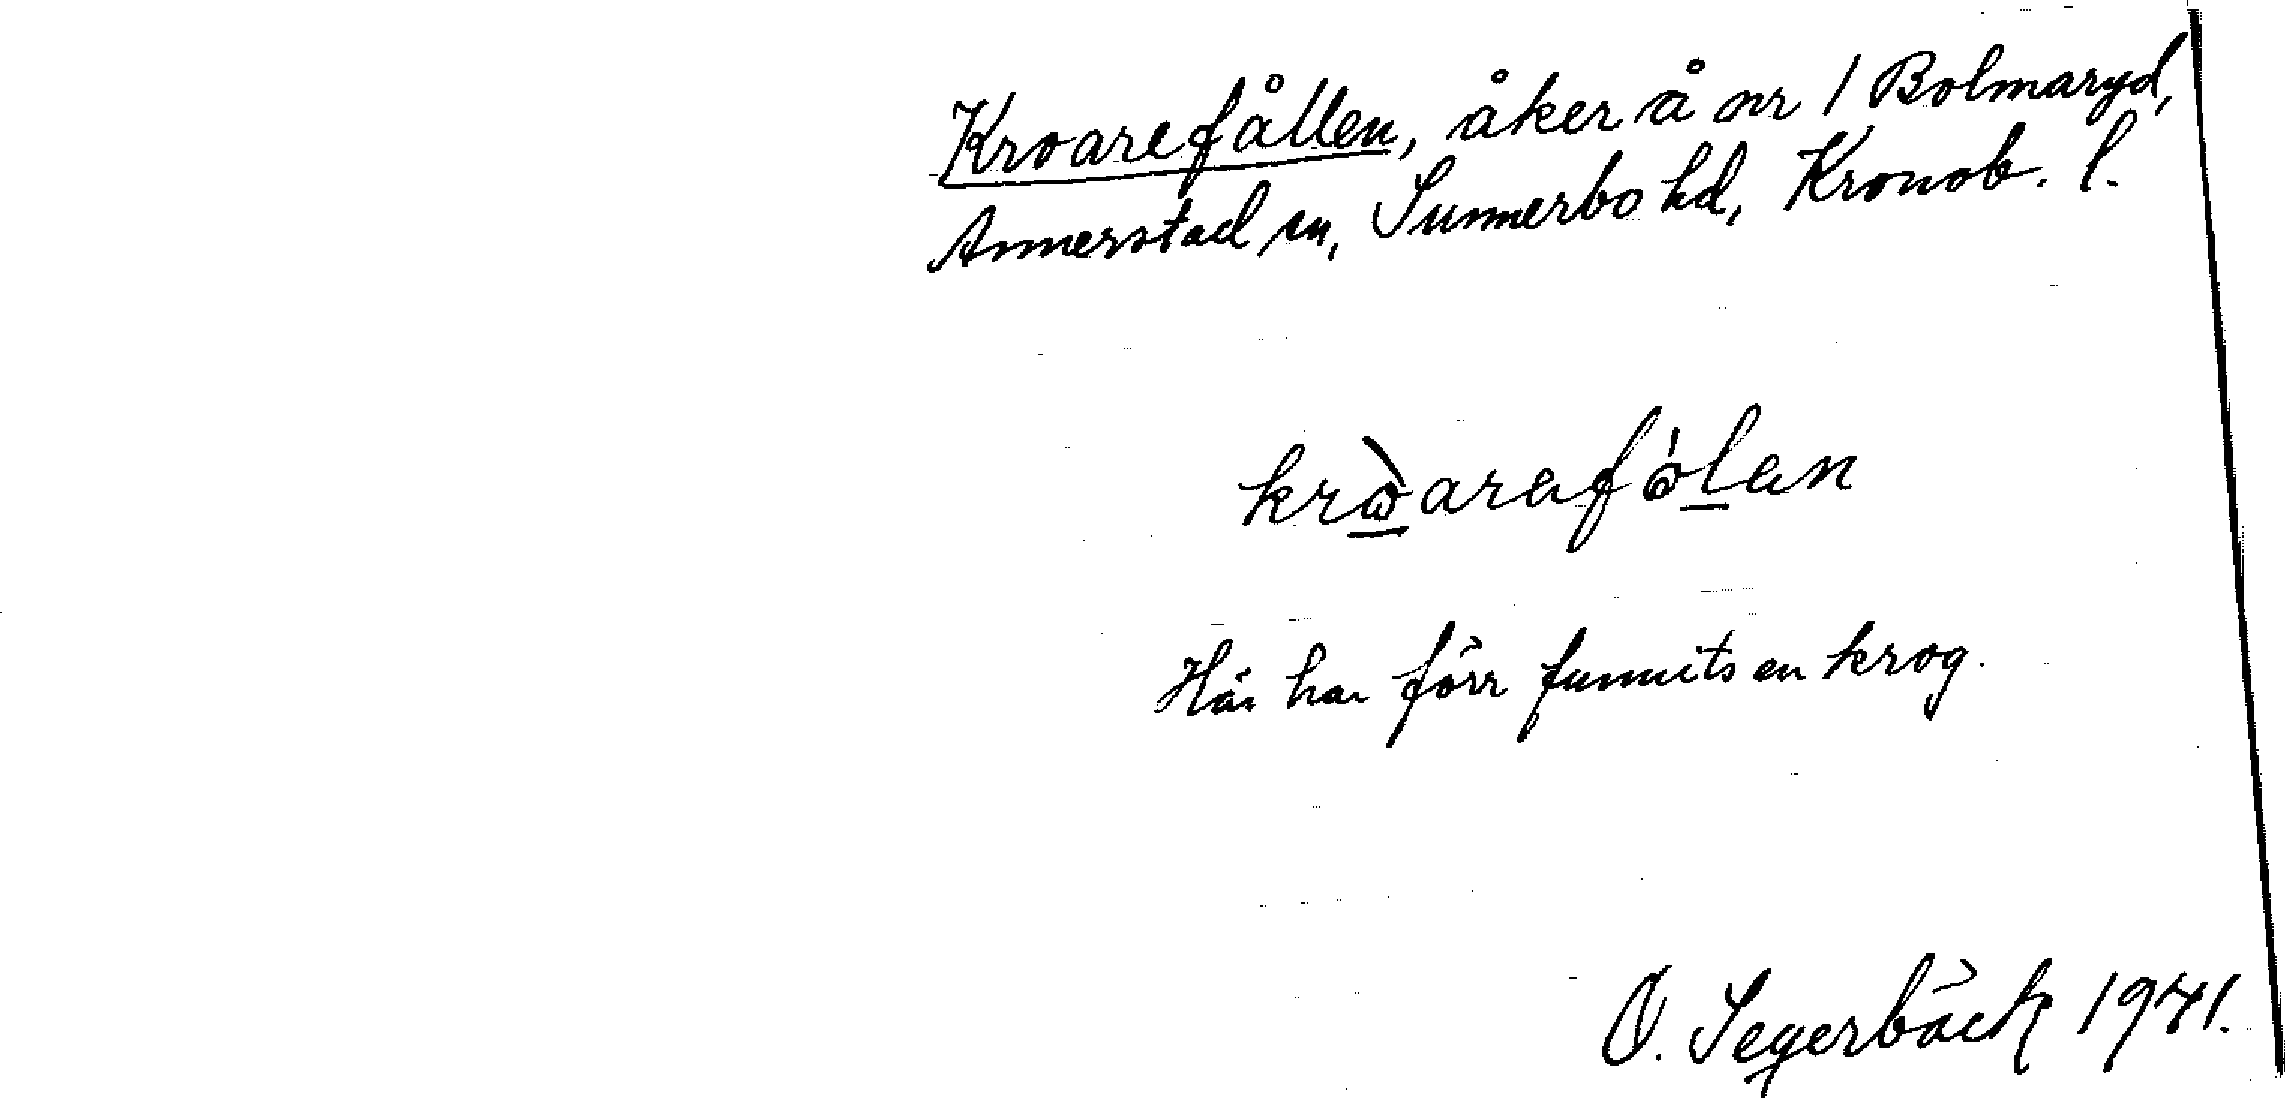 Kroarefållen, åker å nr 1 Bolmaryd,
Annerstad sn, Sunnerbo hd, Kronob. l.
kròarefólen
Här har förr funnits en krog.
O. Segerbäck 1941.